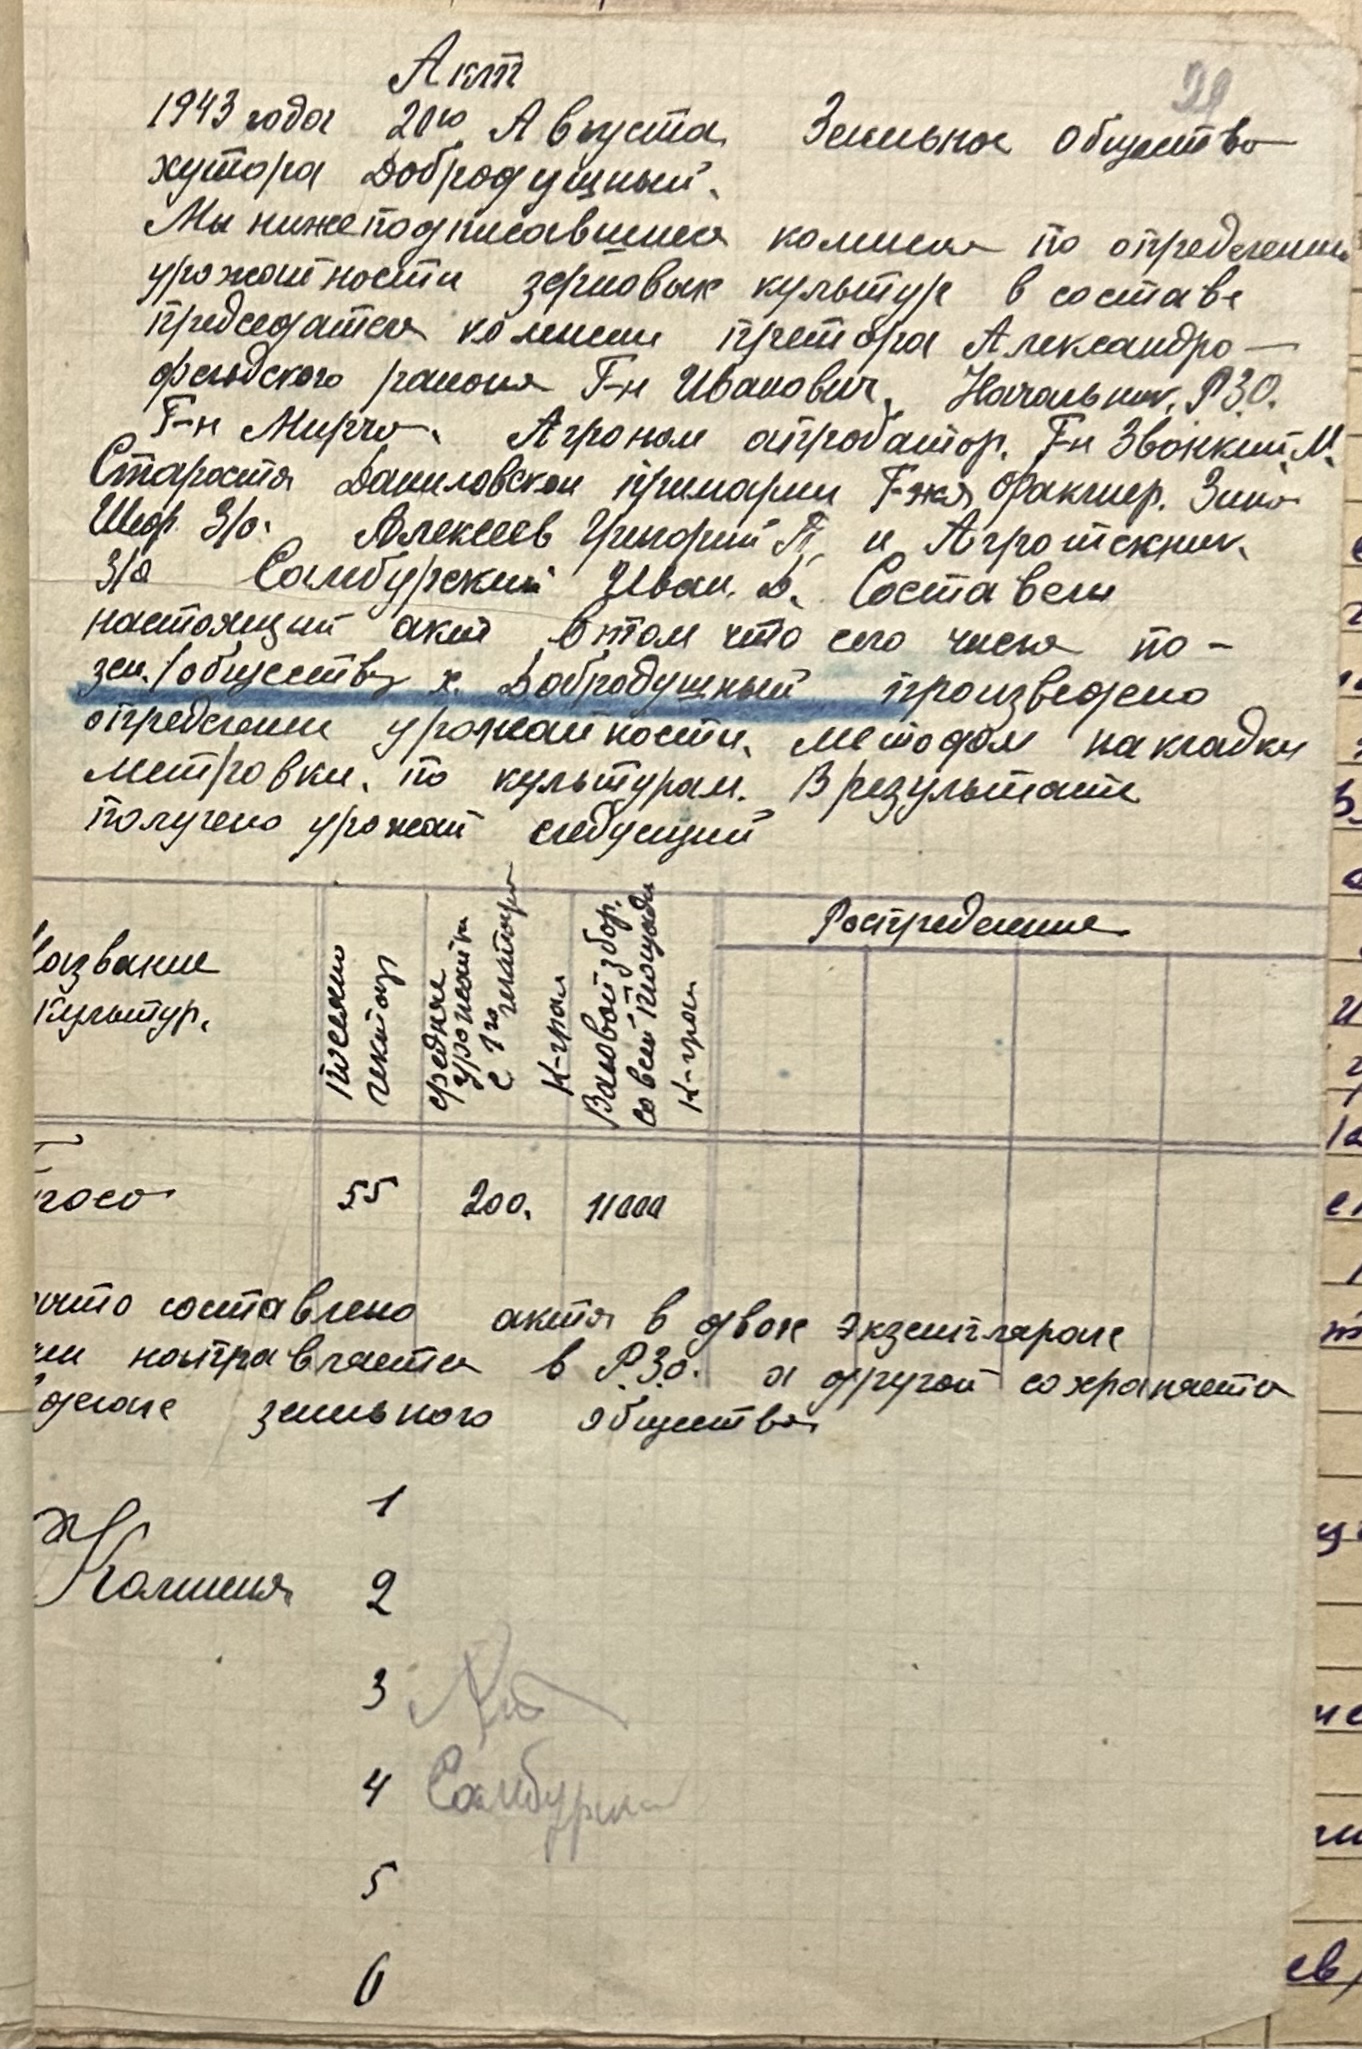 Акт
29
1943 года 20го Августа Земельное общество
хутора Добродушный.
Мы нижеподписавшиеся комисия по определении
урожайности зерновых культур в составе
председателя комисии претора Александро-
фельдского района Г-н Иванович, Начальник. РЗО.
Г-н Мирчо. Агроном апробатор. Г-н Звонкий. М.
Староста Даниловской примарии Г-жа Зина
Шеф. З/о. Алексеев Григорий П. и Агротехник.
З/о Самбурский Иван. Д. Составели
настоящий акт в том что сего числа по-
зем./обществу х. Добродушный произведено
определении урожайности, методом накладки
метровки. по культурам. В результате
получено урожай следующий
Название
Культур.
посеяно
гектар
средняя
урожайнь
с 1го гектара
К-грам
Валовой збор.
со всей площади
К-грам
Роспределение
Просо
55
200.
11000
составлено акта в двох экземплярах
направляется в Р.З.О. а другой сохраняется
делах земельного общества
Комисия
1
2
3
4 Самбурский
5
6